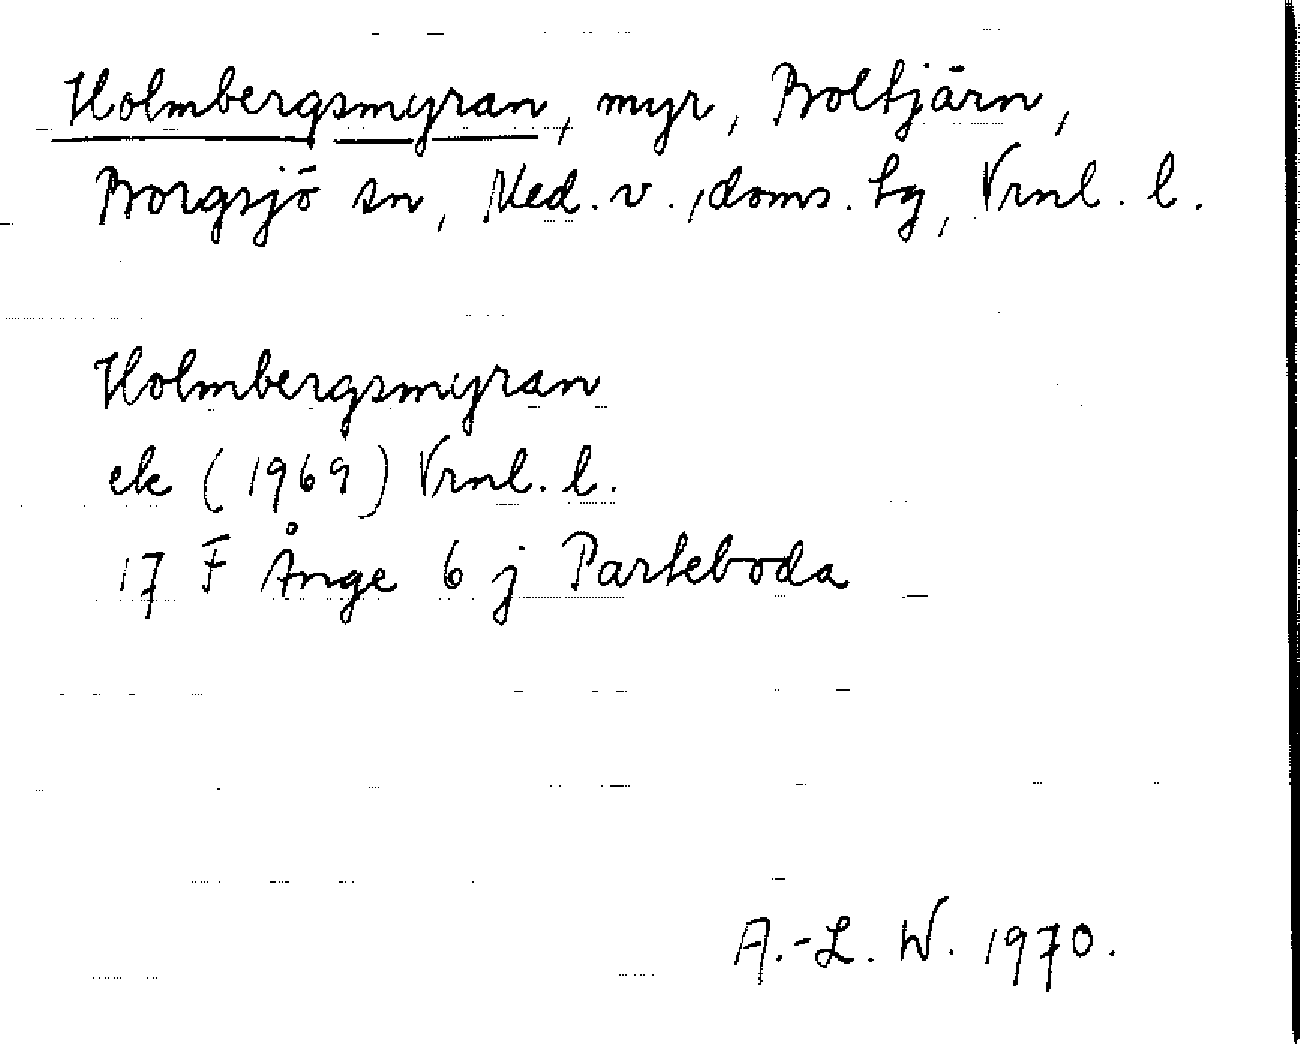 Holmbergsmyran, myr, Boltjärn,
Borgsjö sn, Med. v., doms. hg, Vrnl. l.
Holmbergsmyran
ek (1969) Vrnl. l.
17 F Ånge 6 j Parteboda
A.-L. W. 1970.